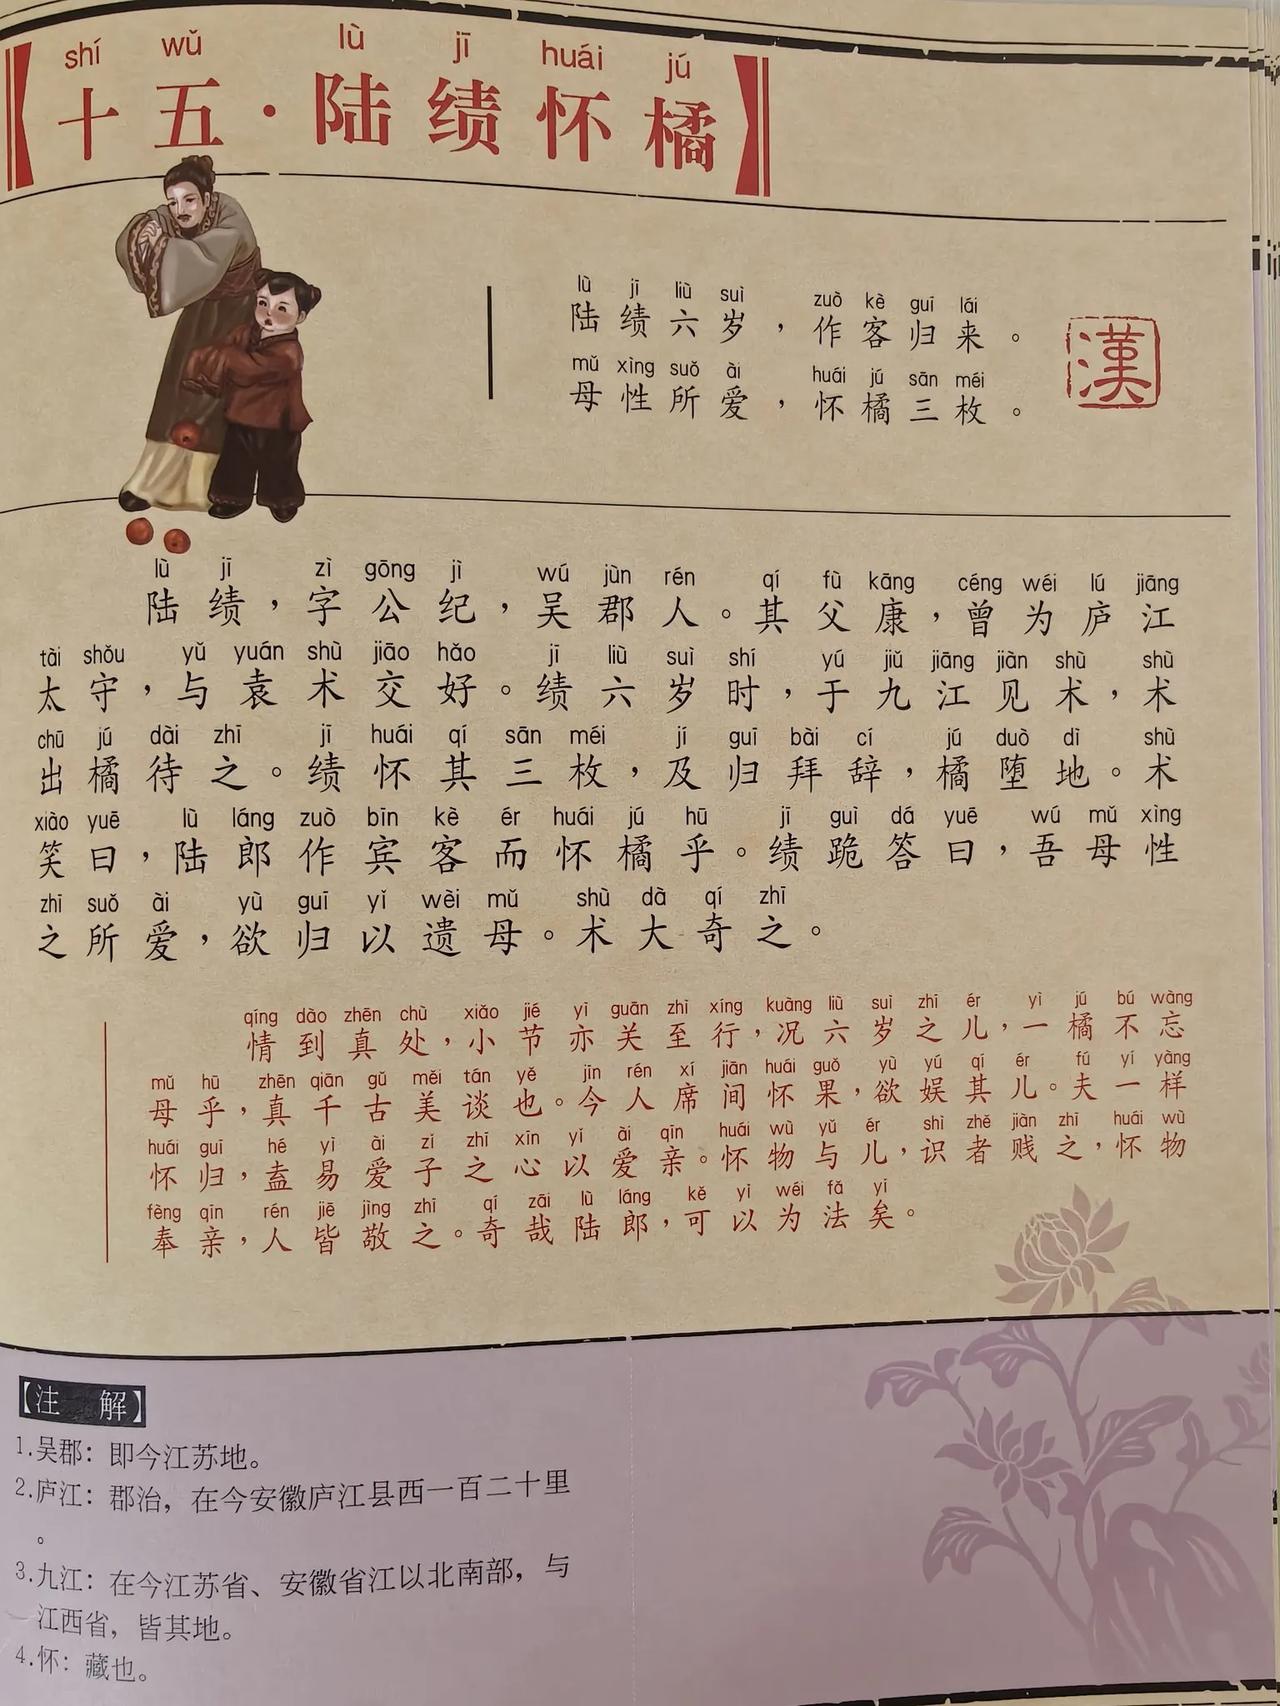 shí wǔ lù jī huái jú
【十五·陆绩怀橘】
lù jī liù suì zuò kè guī lái
陆绩六岁，作客归来。
mǔ xìng suǒ ài huái jú sān méi
母性所爱，怀橘三枚。
漢
lù jī zì gōng jì wú jùn rén qí fù kāng céng wéi lú jiāng
陆绩，字公纪，吴郡人。其父康，曾为庐江
tài shǒu yǔ yuán shù jiāo hǎo jī liù suì shí yú jiǔ jiāng jiàn shù shù
太守，与袁术交好。绩六岁时，于九江见术，术
chū jú dài zhī jī huái qí sān méi jí guī bài cí jú duò dì shù
出橘待之。绩怀其三枚，及归拜辞，橘堕地。术
xiào yuē lù láng zuò bīn kè ér huái jú hū jī guì dá yuē wú mǔ xìng
笑曰，陆郎作宾客而怀橘乎。绩跪答曰，吾母性
zhī suǒ ài yù guī yǐ wèi mǔ shù dà qí zhī
之所爱，欲归以遗母。术大奇之。
qíng dào zhēn chù xiǎo jié yì guān zhì xíng kuàng liù suì zhī ér yì jú bú wàng
情到真处，小节亦关至行，况六岁之儿，一橘不忘
mǔ hū zhēn qiān gǔ měi tán yě jīn rén xí jiān huái guǒ yù yú qí ér fú yí yàng
母乎，真千古美谈也。今人席间怀果，欲娱其儿。夫一样
huái guī hé yì ài zǐ zhī xīn yǐ ài qīn huái wù yǔ ér shì zhě jiàn zhī huái wù
怀归，盍易爱子之心以爱亲。怀物与儿，识者贱之，怀物
fèng qīn rén jiē jìng zhī qí zāi lù láng kě yǐ wéi fǎ yǐ
奉亲，人皆敬之。奇哉陆郎，可以为法矣。
【注 解】
1.吴郡：即今江苏地。
2.庐江：郡治，在今安徽庐江县西一百二十里
。
3.九江：在今江苏省、安徽省江以北南部，与
江西省，皆其地。
4.怀：藏也。